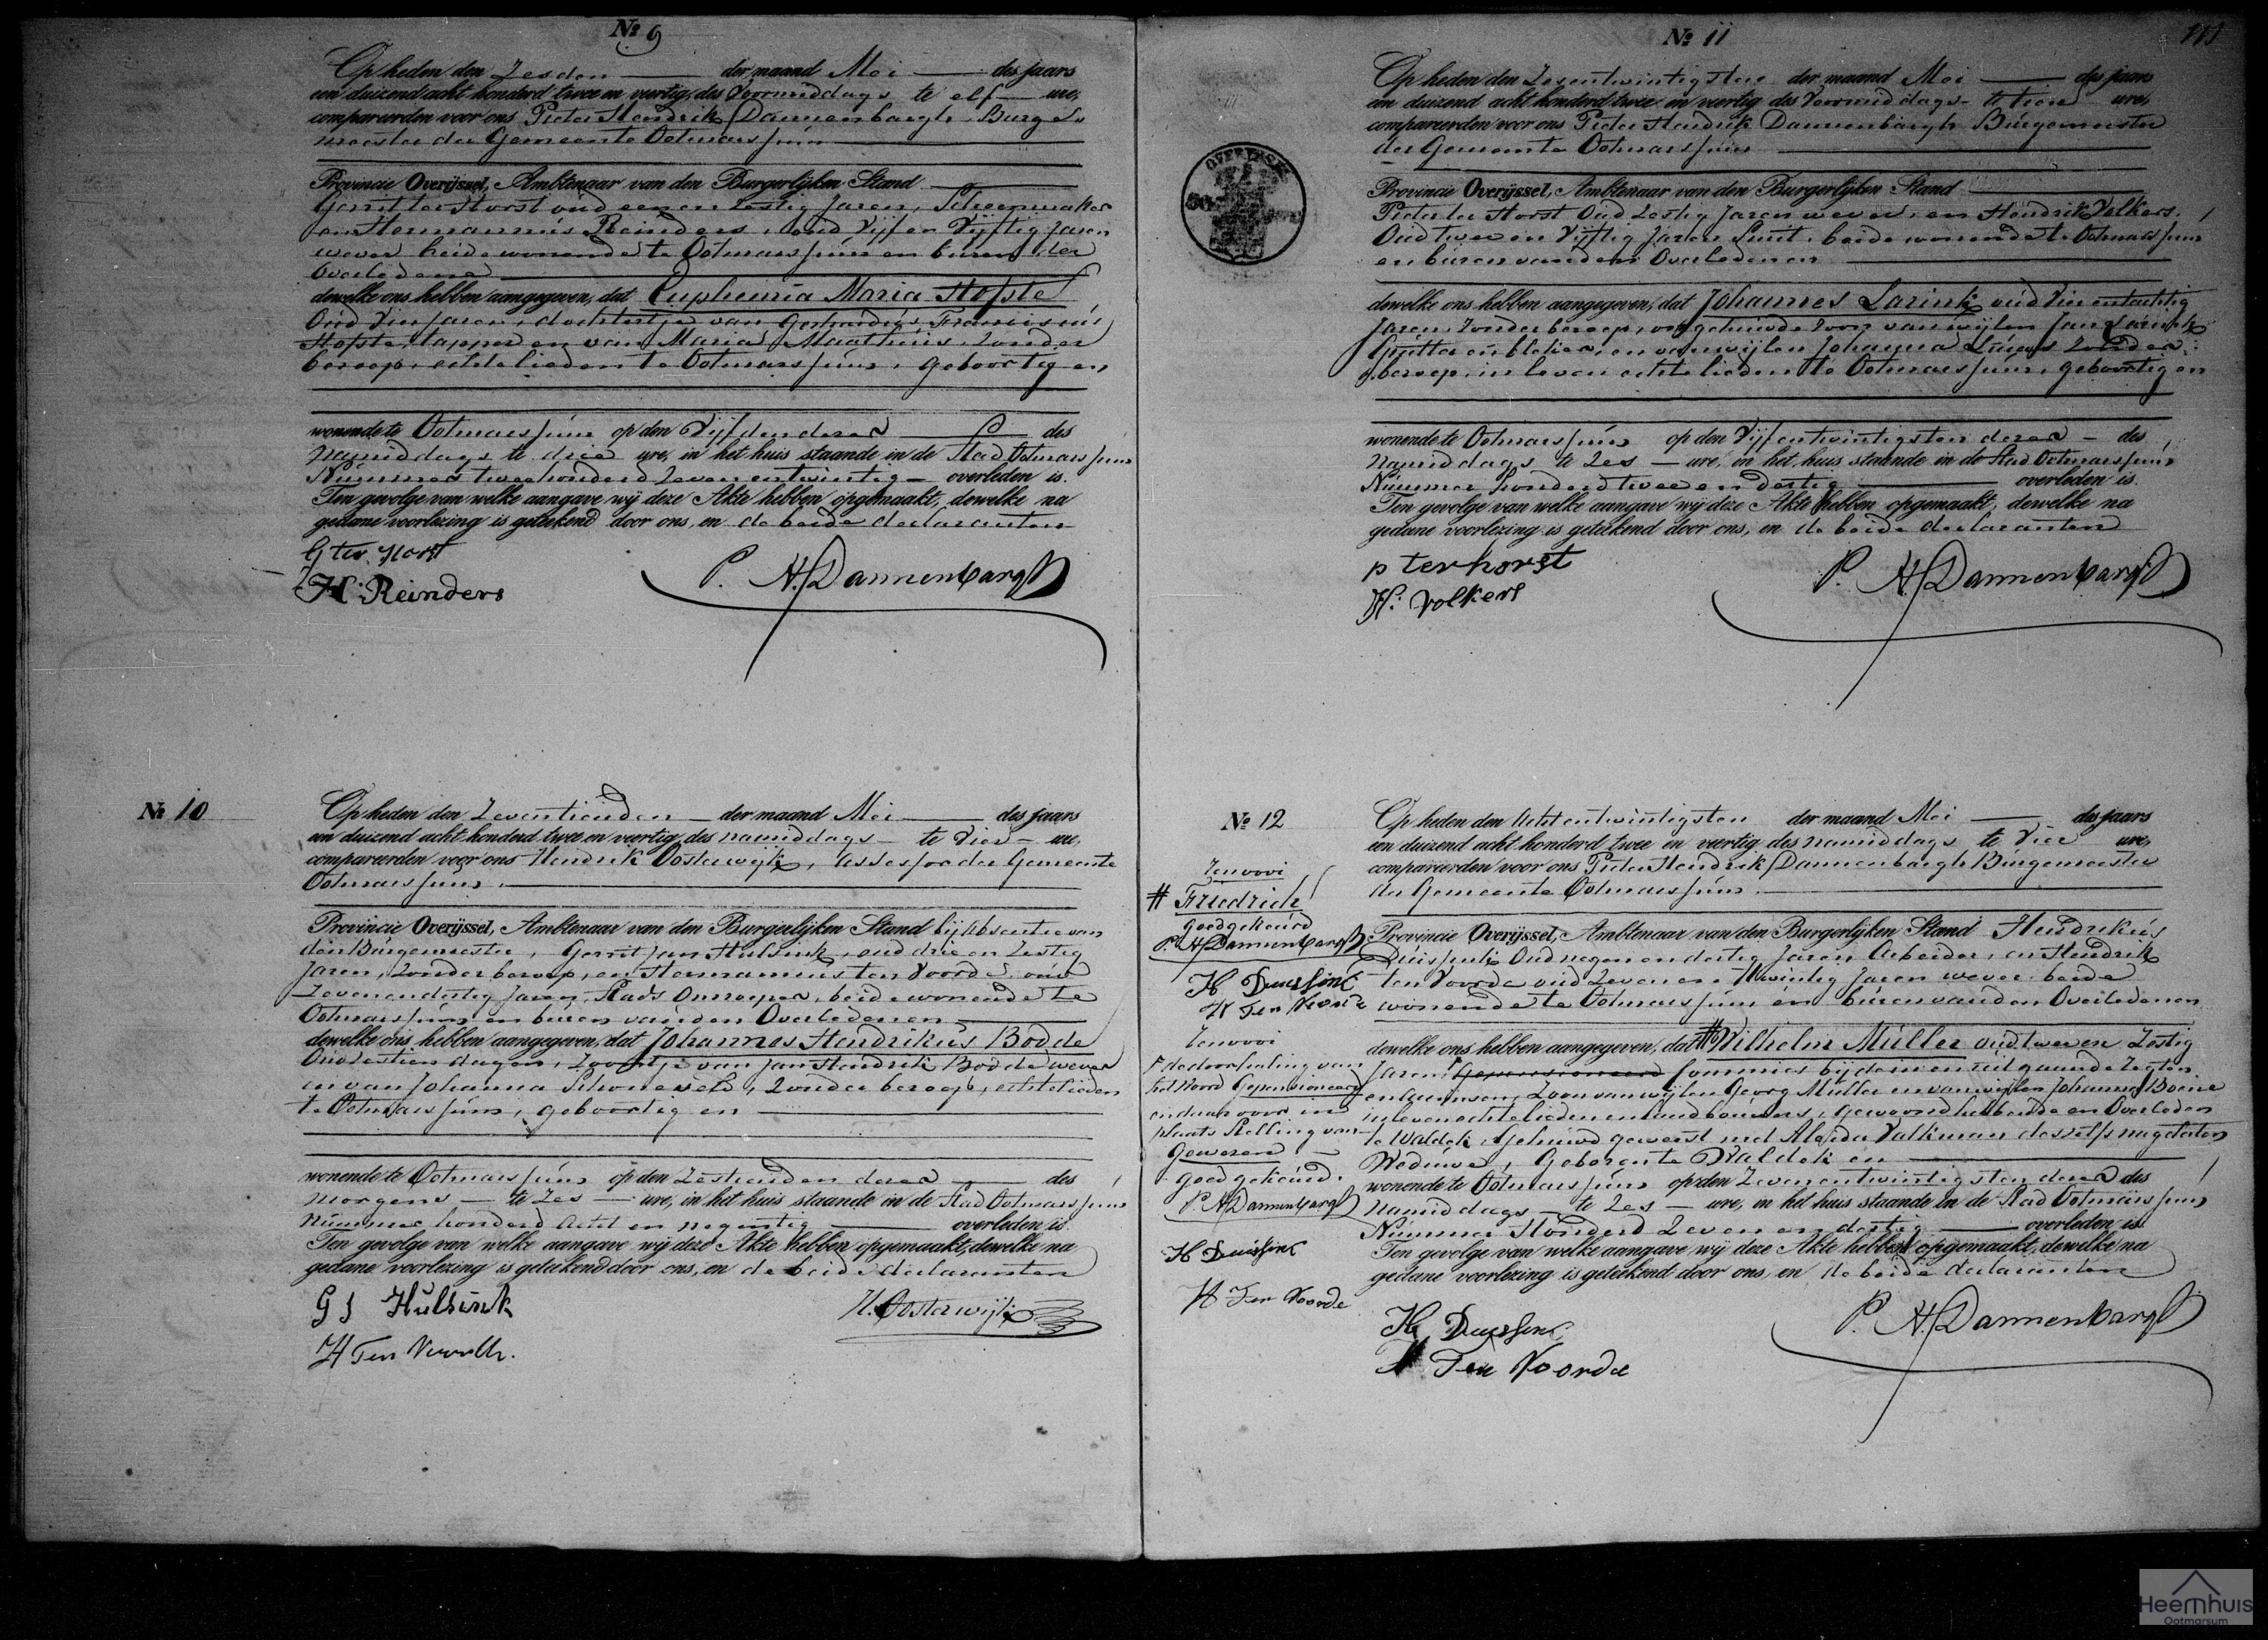 № 9
Op heden den Zesden der maand Mei des jaars
een duizend acht honderd twee en veertig, des Voormiddags te elf ure,
compareerden voor ons Pieter Hendrik Dannenbargh Burge-
meester der Gemeente Ootmarsum
Provincie Overijssel, Ambtenaar van den Burgerlijken Stand
Gerrit ter Horst oud een en Zestig Jaren, Schoenmaker
en Hermannus Reinders, oud Vijf en Vijftig Jaren
wever beide wonende te Ootmarssum en buren der
Overledene
dewelke ons hebben aangegeven, dat Euphemia Maria Hofste
Oud Vier Jaren, dochtertje van Gerhardus Franciscus
Hofste, tapper en van Maria Maathuis, zonder
beroep, echtelieden te Ootmarssum, geboortig en
wonende te Ootmarssum op den Vijfden dezer des
namiddags te drie ure, in het huis staande in de Stad Ootmarssum
Nummer twee honderd Zeven en twintig overleden is.
Ten gevolge van welke aangave wij deze Akte hebben opgemaakt, dewelke na
gedane voorlezing is geteekend door ons, en de beide declaranten
G ter Horst
H: Reinders
P. H. Dannenbargh
№ 10
Op heden den Zeventienden der maand Mei des jaars
een duizend acht honderd twee en veertig, des namiddags te Vier ure,
compareerden voor ons Hendrik Oosterwijk, Assessor der Gemeente
Ootmarssum,
Provincie Overijssel, Ambtenaar van den Burgerlijken Stand bij Absentie van
den Burgemeester, Gerrit Jan Hulsink, oud drie en Zestig
Jaren, Zonder beroep, en Hermannus ten Voorde, oud
Zeven en dertig Jaren, Stads Omroeper, beide wonende te
Ootmarssum en buren van den Overledenen
dewelke ons hebben aangegeven, dat Johannes Hendrikus Bodde
Oud Zestien dagen, Zoontje van Jan Hendrik Bodde wever
en van Johanna Schoneveld, Zonder beroep, echtelieden
te Ootmarssum, geboortig en
wonende te Ootmarssum op den Zestienden dezer des
morgens te Zes ure, in het huis staande in de Stad Ootmarssum
Nummer honderd Acht en negentig overleden is.
Ten gevolge van welke aangave wij deze Akte hebben opgemaakt, dewelke na
gedane voorlezing is geteekend door ons, en de beide declaranten
G J Hulsink
H. Oosterwijk
H Ten Voorde.
№ 11
Op heden den Zesentwintigsten der maand Mei des jaars
een duizend acht honderd twee en veertig des Voormiddags te tien ure,
compareerden voor ons Pieter Hendrik Dannenbargh Burgemeester
der Gemeente Ootmarssum
OVERIJSSEL
Provincie Overijssel, Ambtenaar van den Burgerlijken Stand
Pieter ter Horst Oud Zestig Jaren wever, en Hendrik Volkers,
Oud twee en Vijftig Jaren Smit, beide wonende te Ootmarssum
en buren van den Overledenen
dewelke ons hebben aangegeven, dat Johannes Larink oud Vier en tachtig
Jaren, Zonder beroep, ongehuwde Zoon van wijlen Jan Larink
en van wijlen Johanna Zonder
beroep, in leven echtelieden te Ootmarssum, geboortig en
wonende te Ootmarssum op den Vijfentwintigsten dezer des
namiddags te Zes ure, in het huis staande in de Stad Ootmarssum
Nummer honderd twee en dertig overleden is.
Ten gevolge van welke aangave wij deze Akte hebben opgemaakt, dewelke na
gedane voorlezing is geteekend door ons, en de beide declaranten
p terhorst
H: Volkers
P. H. Dannenbargh
№ 12
Op heden den Achtentwintigsten der maand Mei des jaars
een duizend acht honderd twee en veertig des namiddags te Vier ure,
compareerden voor ons Pieter Hendrik Dannenbargh Burgemeester
der Gemeente Ootmarssum
Provincie Overijssel, Ambtenaar van den Burgerlijken Stand Hendrikus
Oud negen en dertig Jaren, Arbeider, en Hendrik
ten Voorde oud Zeven en Twintig Jaren wever beide
wonende te Ootmarssum en buren van den Overledenen
dewelke ons hebben aangegeven, dat # Wilhelm Müller oud twee en Zestig
Jaren, Gepensioneerd Commies bij de in en uitgaande regten
en Zoon van wijlen Georg Müller en van wijlen Johanna Boene
in leven echtelieden en landbouwers, gewoond hebbende en Overleden
te Waldek, Gehuwd geweest met Aleida Valkman deszelfs nagelaten
Weduwe, Geboren te Waldek en
wonende te Ootmarssum op den Zevenentwintigsten dezer des
namiddags te Zes ure, in het huis staande in de Stad Ootmarssum
Nummer Honderd Zeven en dertig overleden is.
Ten gevolge van welke aangave wij deze Akte hebben opgemaakt, dewelke na
gedane voorlezing is geteekend door ons, en de beide declaranten
H Duessink
H Ten Voorde
P. H. Dannenbargh
Renvooi
# Friedrich
Goedgekeurd
P. H. Dannenbargh
H Duessink
H Ten Voorde
Renvooi
de doorhaling van
het Woord Gepensioneerd
en daar voor in
plaats Stelling van
Gewezen
goedgekeurd.
P. H. Dannenbargh
H Duessink
H Ten Voorde
Heemhuis
Ootmarsum